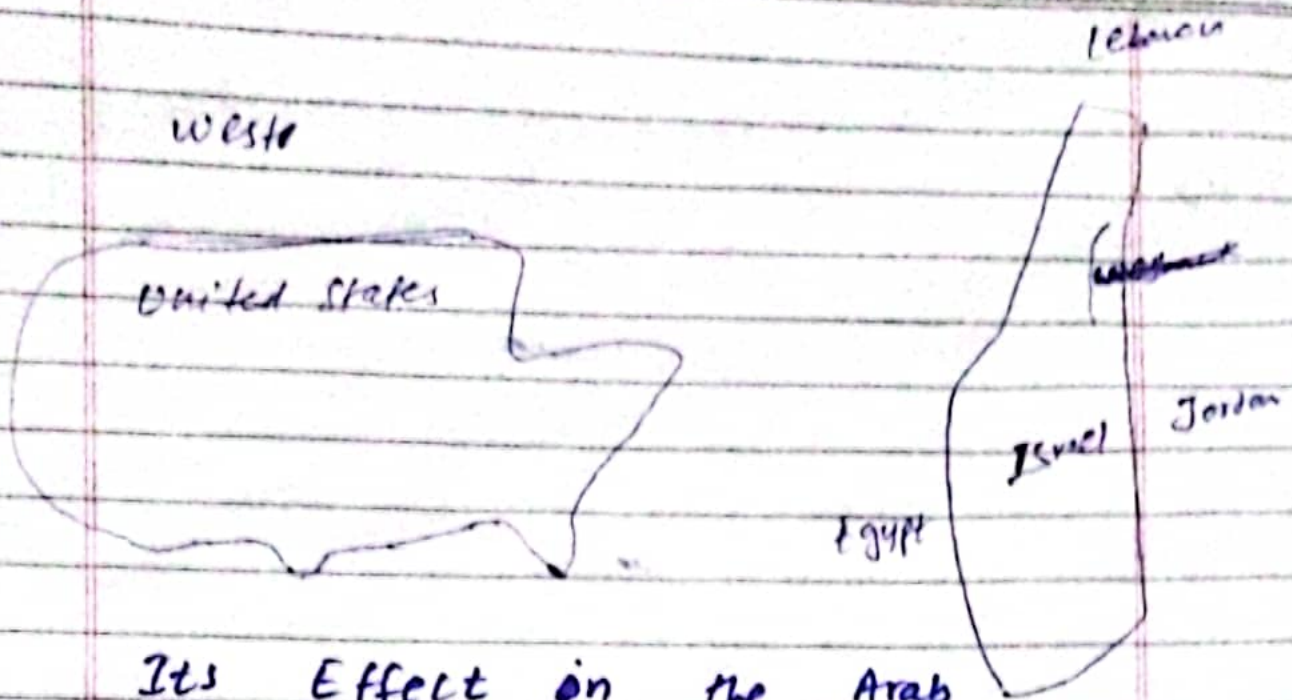 Lebnon
Weste
United States
Jordan
Israel
Egypt
Its Effect on the Arab